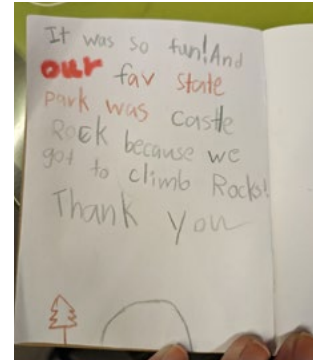 It was so fun! And
our fav state
park was castle
Rock because we
got to climb Rocks!
Thank you